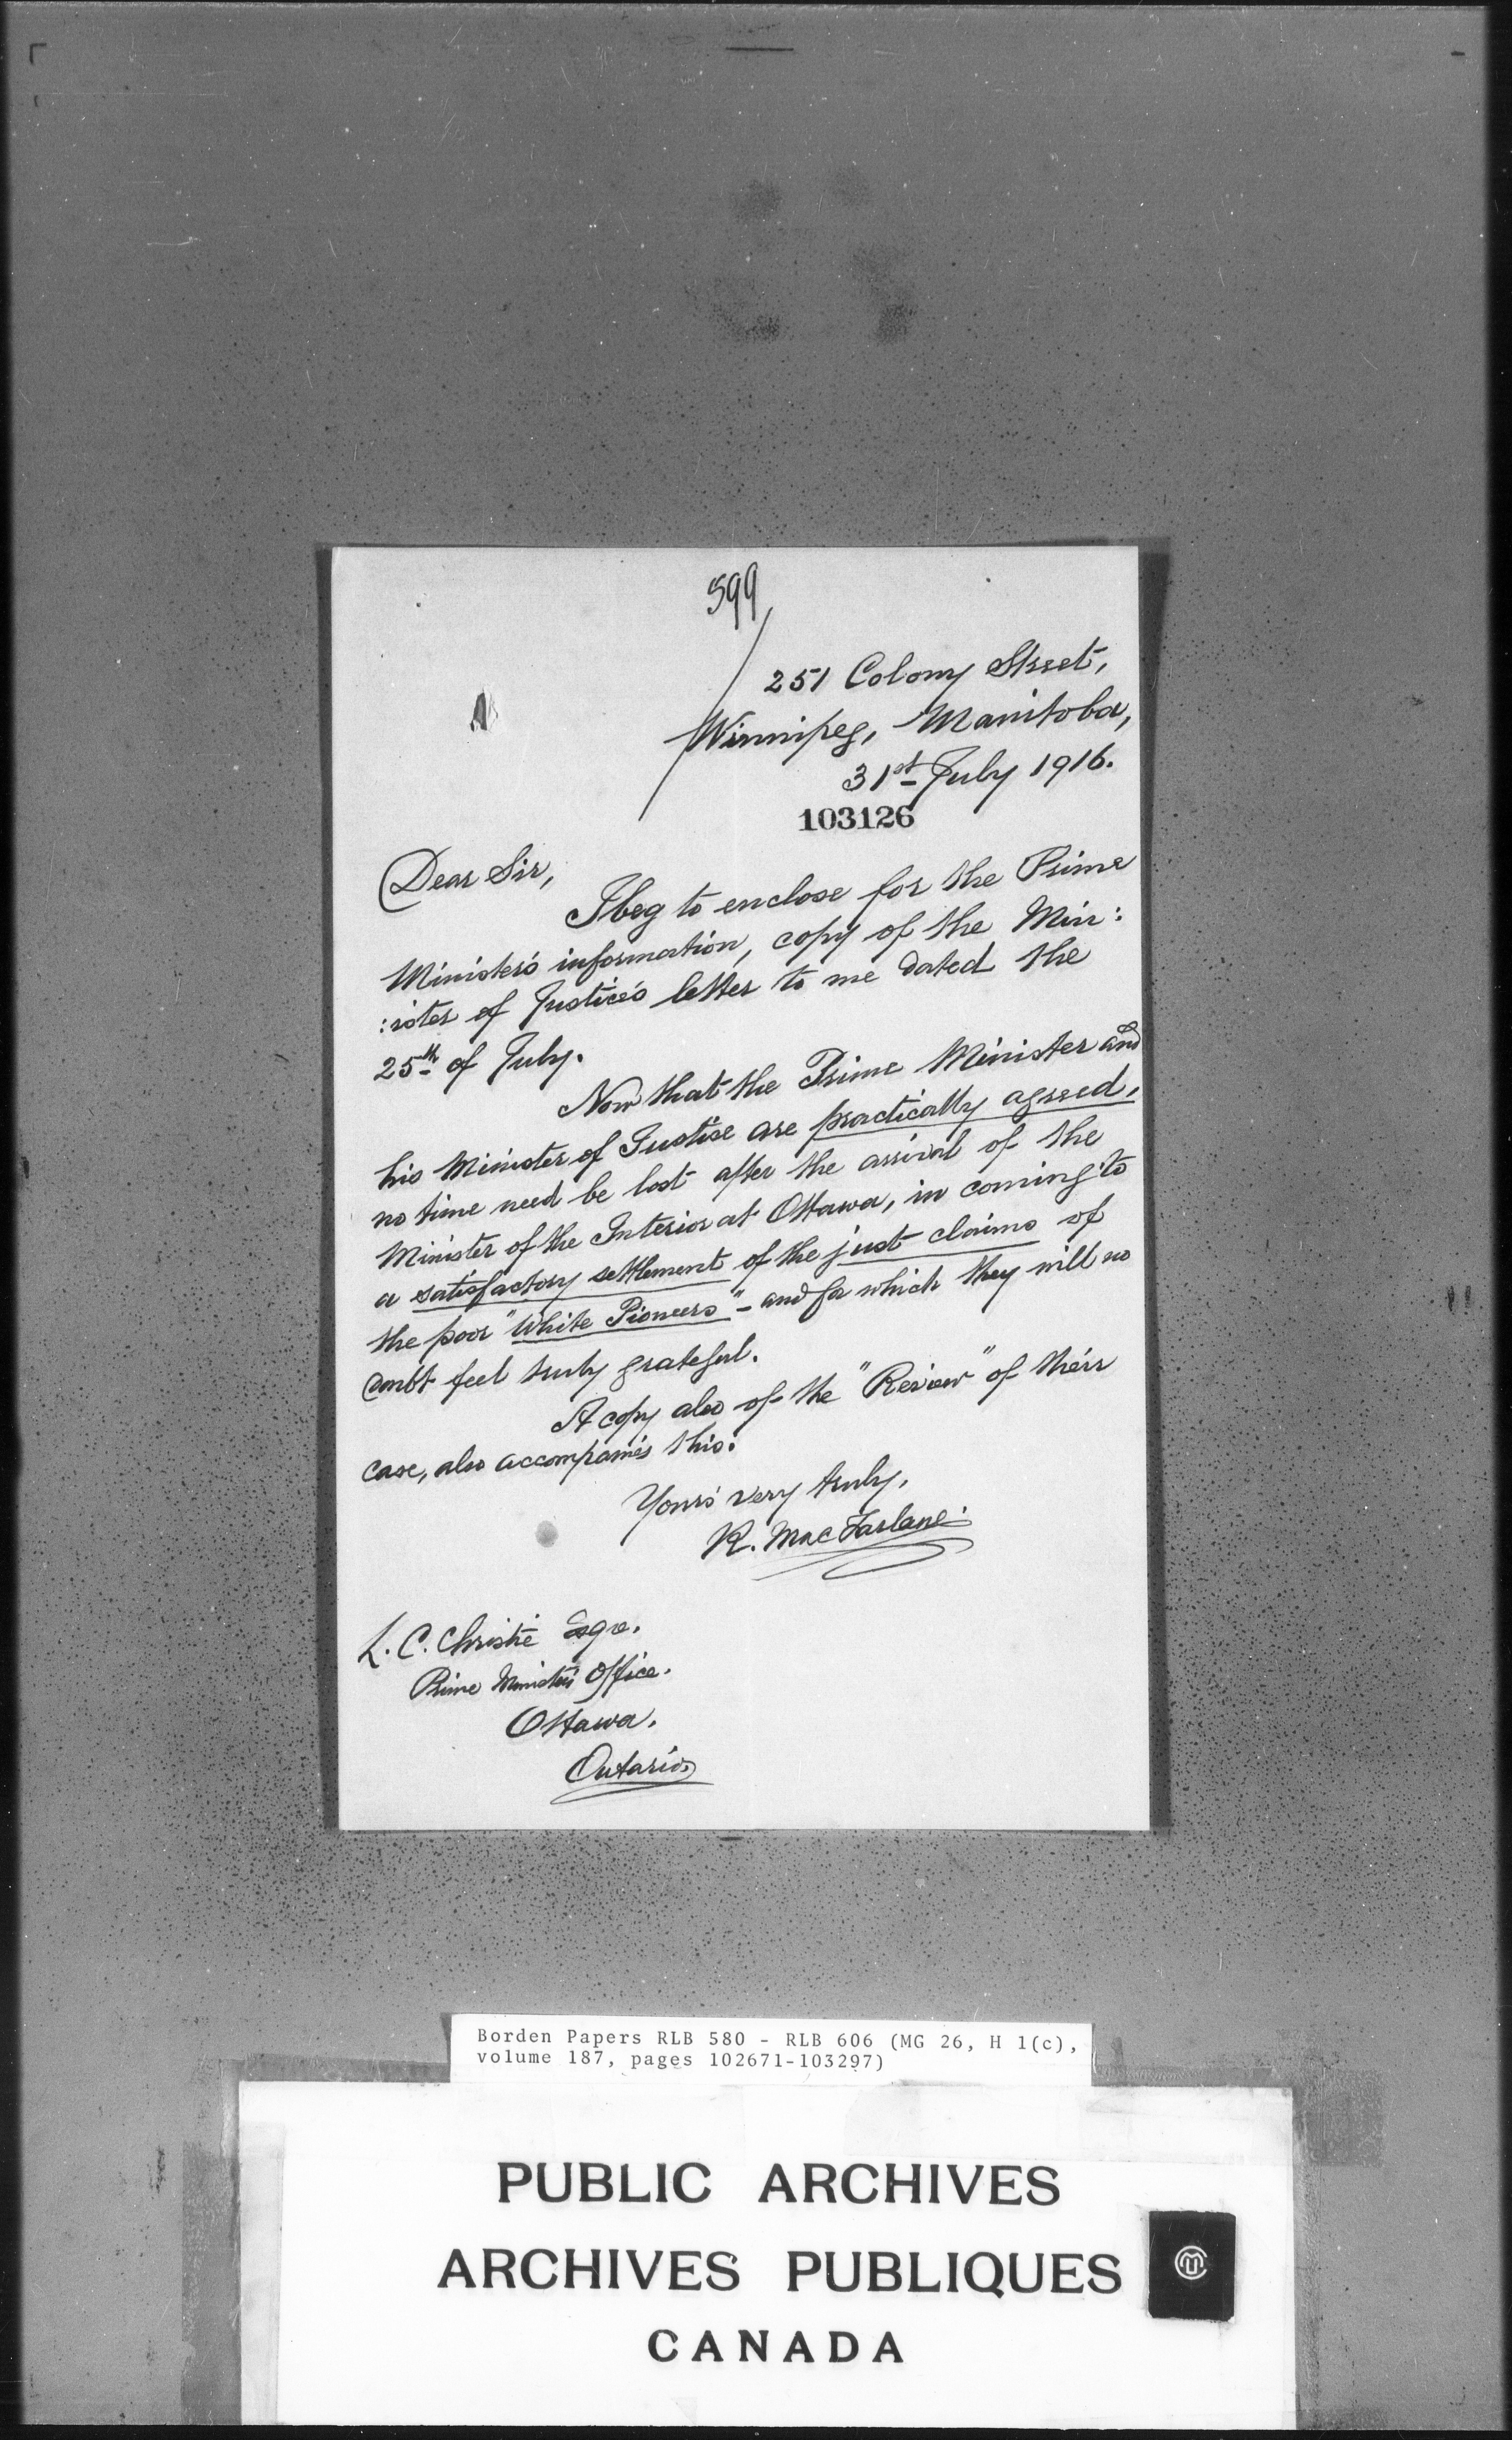 599
251 Colony Street,
Winnipeg, Manitoba,
31st July 1916.
103126
Dear Sir,
I beg to enclose for the Prime
Minister's information, copy of the Min:
:ister of Justice's letter to me dated the
25th of July.
Now that the Prime Minister and
his Minister of Justice are practically agreed,
no time need be lost after the arrival of the
Minister of the Interior at Ottawa, in coming to
a satisfactory settlement of the just claims of
the poor "White Pioneers" - and for which they will no
doubt feel truly grateful.
A copy also of the "Review" of their
case, also accompanies this.
Yours very truly,
R. MacFarlane.
L. C. Christie Esqre.
Prime Minister's Office.
Ottawa.
Ontario
Borden Papers RLB 580 - RLB 606 (MG 26, H 1(c),
volume 187, pages 102671-103297)
PUBLIC ARCHIVES
ARCHIVES PUBLIQUES
CANADA